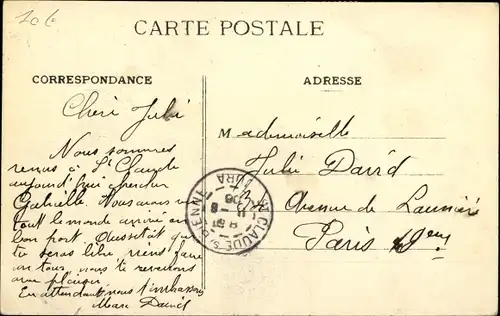 206
CARTE POSTALE
CORRESPONDANCE
ADRESSE
Chère Julie
Nous sommes
venus à St Claude
aujourd'hui chercher
Gabrielle. Nous avons vu
tout le monde arrivé en
bon port. Aussitôt que
tu seras libre viens faire
un tour, nous te reverrons
avec plaisir.
En attendant nous t'embrassons
Marc David
Mademoiselle
Julie David
32 Avenue de Laumière
Paris
ST CLAUDE S. BIENNE
JURA